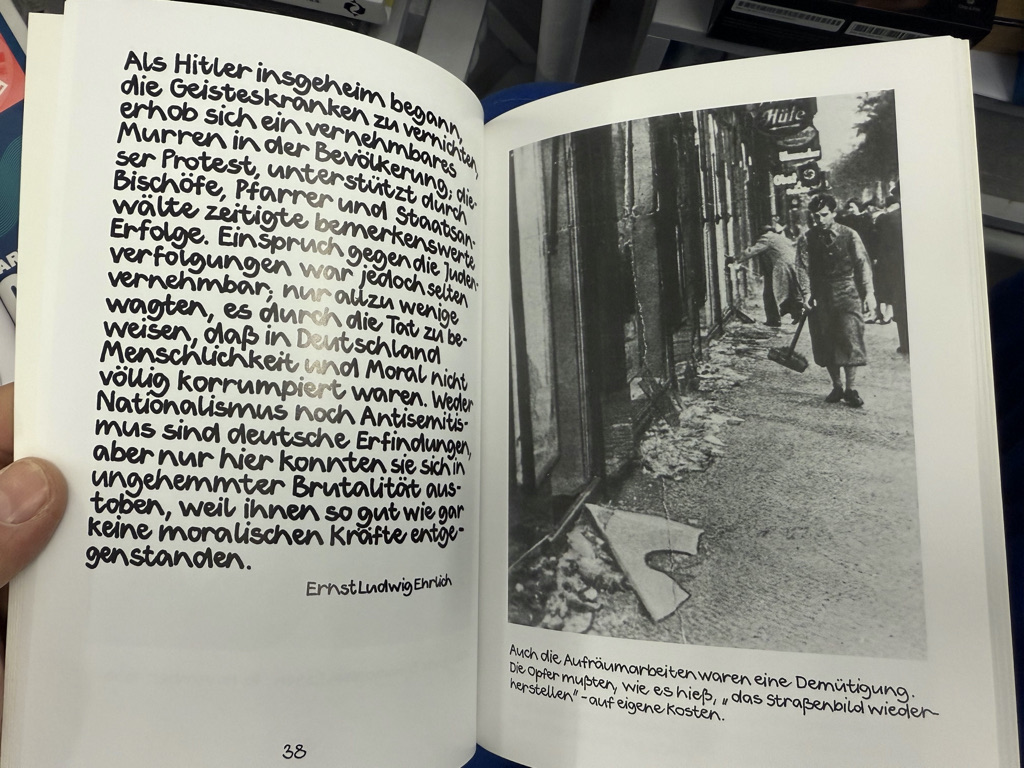 Als Hitler insgeheim begann,
die Geisteskranken zu vernichten,
erhob sich ein vernehmbares
Murren in der Bevölkerung; die-
ser Protest, unterstützt durch
Bischöfe, Pfarrer und Staatsan-
wälte zeitigte bemerkenswerte
Erfolge. Einspruch gegen die Juden-
verfolgungen war jedoch selten
vernehmbar, nur allzu wenige
wagten, es durch die Tat zu be-
weisen, daß in Deutschland
Menschlichkeit und Moral nicht
völlig korrumpiert waren. Weder
Nationalismus noch Antisemitis-
mus sind deutsche Erfindungen,
aber nur hier konnten sie sich in
ungehemmter Brutalität aus-
toben, weil ihnen so gut wie gar
keine moralischen Kräfte entge-
genstanden.
Ernst Ludwig Ehrlich
38
Hüte
Auch die Aufräumarbeiten waren eine Demütigung.
Die Opfer mußten, wie es hieß, „das Straßenbild wieder-
herstellen" - auf eigene Kosten.